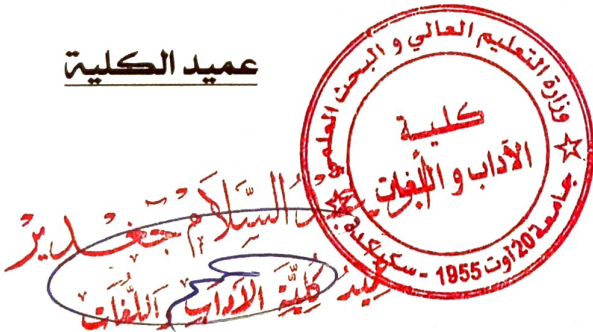 عميد الكلية
وزارة التعليم العالي و البحث العلمي
كليـة
الآداب و اللغات
جامعة 20 أوت 1955 - سكيكدة
عبد السَّلَامْ جَغْدِير
عميدُ كُلِيَّة الآدَابِ وَاللُّغَات